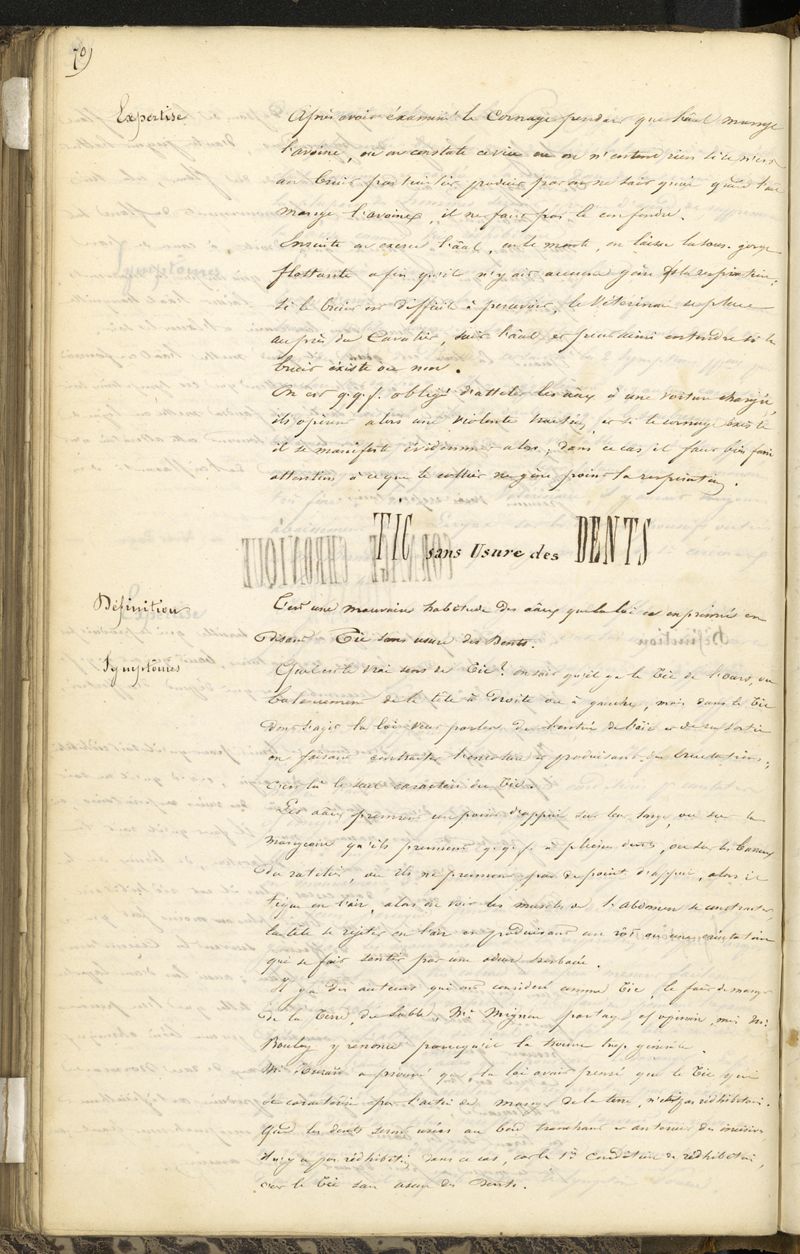 70)
Expertise
Après avoir examiné le Cornage pendant que l'âal mange
l'avoine, on on constate ce vice ou on n'entend rien si ce n'est
un bruit particulier produit par on ne sait quoi quand l'âal
mange l'avoine, il ne faut pas le confondre.
Ensuite on exerce l'âal, on le monte, on laisse la sous-gorge
flottante afin qu'il n'y ait aucune gêne à la respiration,
si le bruit est difficile à percevoir, le Vétérinaire se place
auprès du Cavalier, suit l'âal et peut ainsi entendre si le
bruit existe ou non.
On est q.q.f. obligé d'atteler les âux à une voiture chargée,
ils opèrent alors une violente traction, et si le cornage existe
il se manifeste évidemment alors, dans ce cas il faut bien faire
attention à ce que le collier ne gêne point la respiration.
TIC sans Usure des DENTS
Définition
C'est une mauvaise habitude des âux que la loi a exprimée en
disant Tic sans usure des Dents.
Symptômes
Quel est le vrai sens de Tic? on sait qu'il y a le Tic de l'ours, ou
balancement de la tête à droite ou à gauche, mais dans le Tic
dont s'agit la loi veut parler de l'entrée de l'air et de sa sortie
en faisant contracter l'encolure et produisant des éructations,
c'est là le seul caractère du Tic.
Les âux prennent un point d'appui sur leur longe, ou sur la
mangeoire qu'ils prennent q.q.f. à pleines dents, ou sur les barreaux
du ratelier, ou ils ne prennent pas de point d'appui, alors il
tique en l'air, alors on voit les muscles de l'abdomen se contracter,
la tête se rejeter en l'air en produisant un rôt ou une éructation
qui se fait sentir par une odeur
Il y a des auteurs qui ont considéré comme Tic, le fait de manger
de la Terre, du Sable, Mr. Mignon partage cet opinion, mais Mr.
Bouley y renonce parcequ'il la trouve trop générale.
Mr. a prouvé que la loi avait pensé que le Tic qui
se caractérise par l'action de manger de la terre, n'est pas rédhibitoire.
Quand les dents seront usées au bord tranchant et antérieur des incisives
il n'y a pas rédhibition dans ce cas, car la 1re Condition de rédhibition,
c'est le Tic sans usure des Dents.